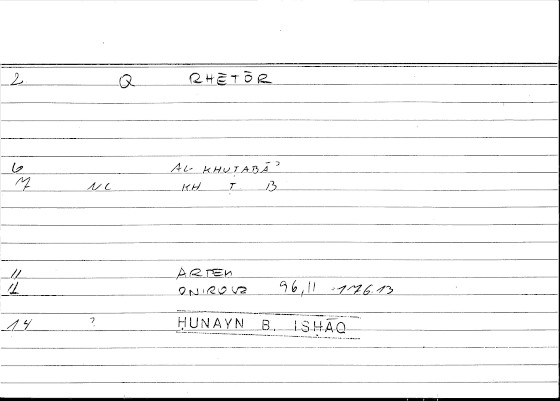 2 Q RHĒTŌR
6 AL-KHUṬABĀʾ
7 NC KH Ṭ B
11 ARTEM
12 ONIROCR 96,11 176.13
14 ? ḤUNAYN B. ISḤĀQ